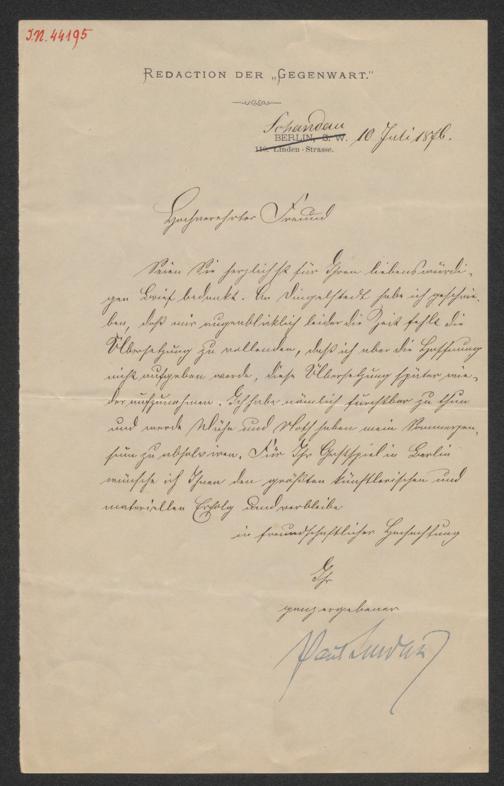 I.N. 44195
REDACTION DER „GEGENWART."
Schandau
BERLIN, S. W. 10 Juli 1876.
110. Linden-Strasse.
Hochverehrter Freund
Seien Sie herzlichst für Ihren liebenswürdi-
gen Brief bedankt. An Dingelstedt habe ich geschrie-
ben, daß mir augenblicklich leider die Zeit fehlt die
Übersetzung zu vollenden, daß ich aber die Hoffnung
nicht aufgeben werde, diese Übersetzung später wie-
der aufzunehmen. Ich habe nämlich furchtbar zu thun
und werde Mühe und Noth haben mein
zu absolviren. Für Ihr Gastspiel in Berlin
wünsche ich Ihnen den größten künstlerischen und
materiellen Erfolg und verbleibe
in freundschaftlicher Hochachtung
Ihr
ganz ergebener
Paul Lindau